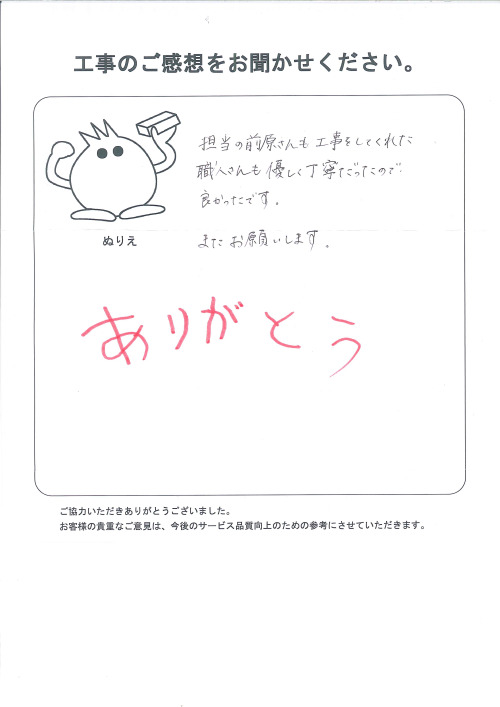 工事のご感想をお聞かせください。
担当の前原さんも工事をしてくれた
職人さんも優しく丁寧だったので
良かったです。
ぬりえ
またお願いします。
ありがとう
ご協力いただきありがとうございました。
お客様の貴重なご意見は、今後のサービス品質向上のための参考にさせていただきます。